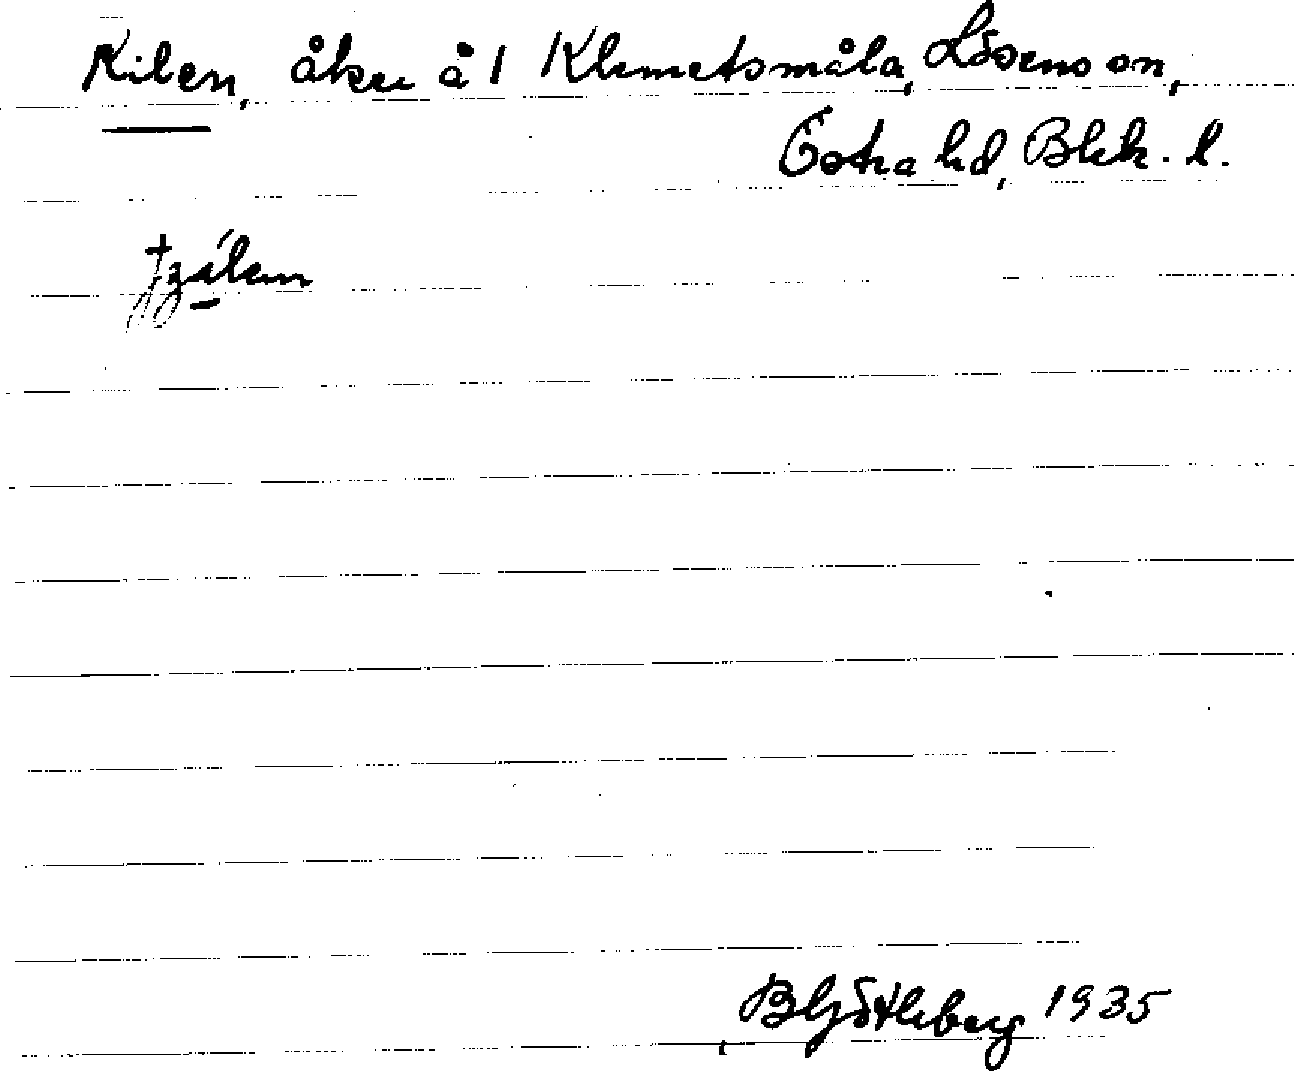 Kilen, åker å 1 Klemetsmåla, Lösens sn,
Östra hd, Blek. l.
B Götleberg 1935